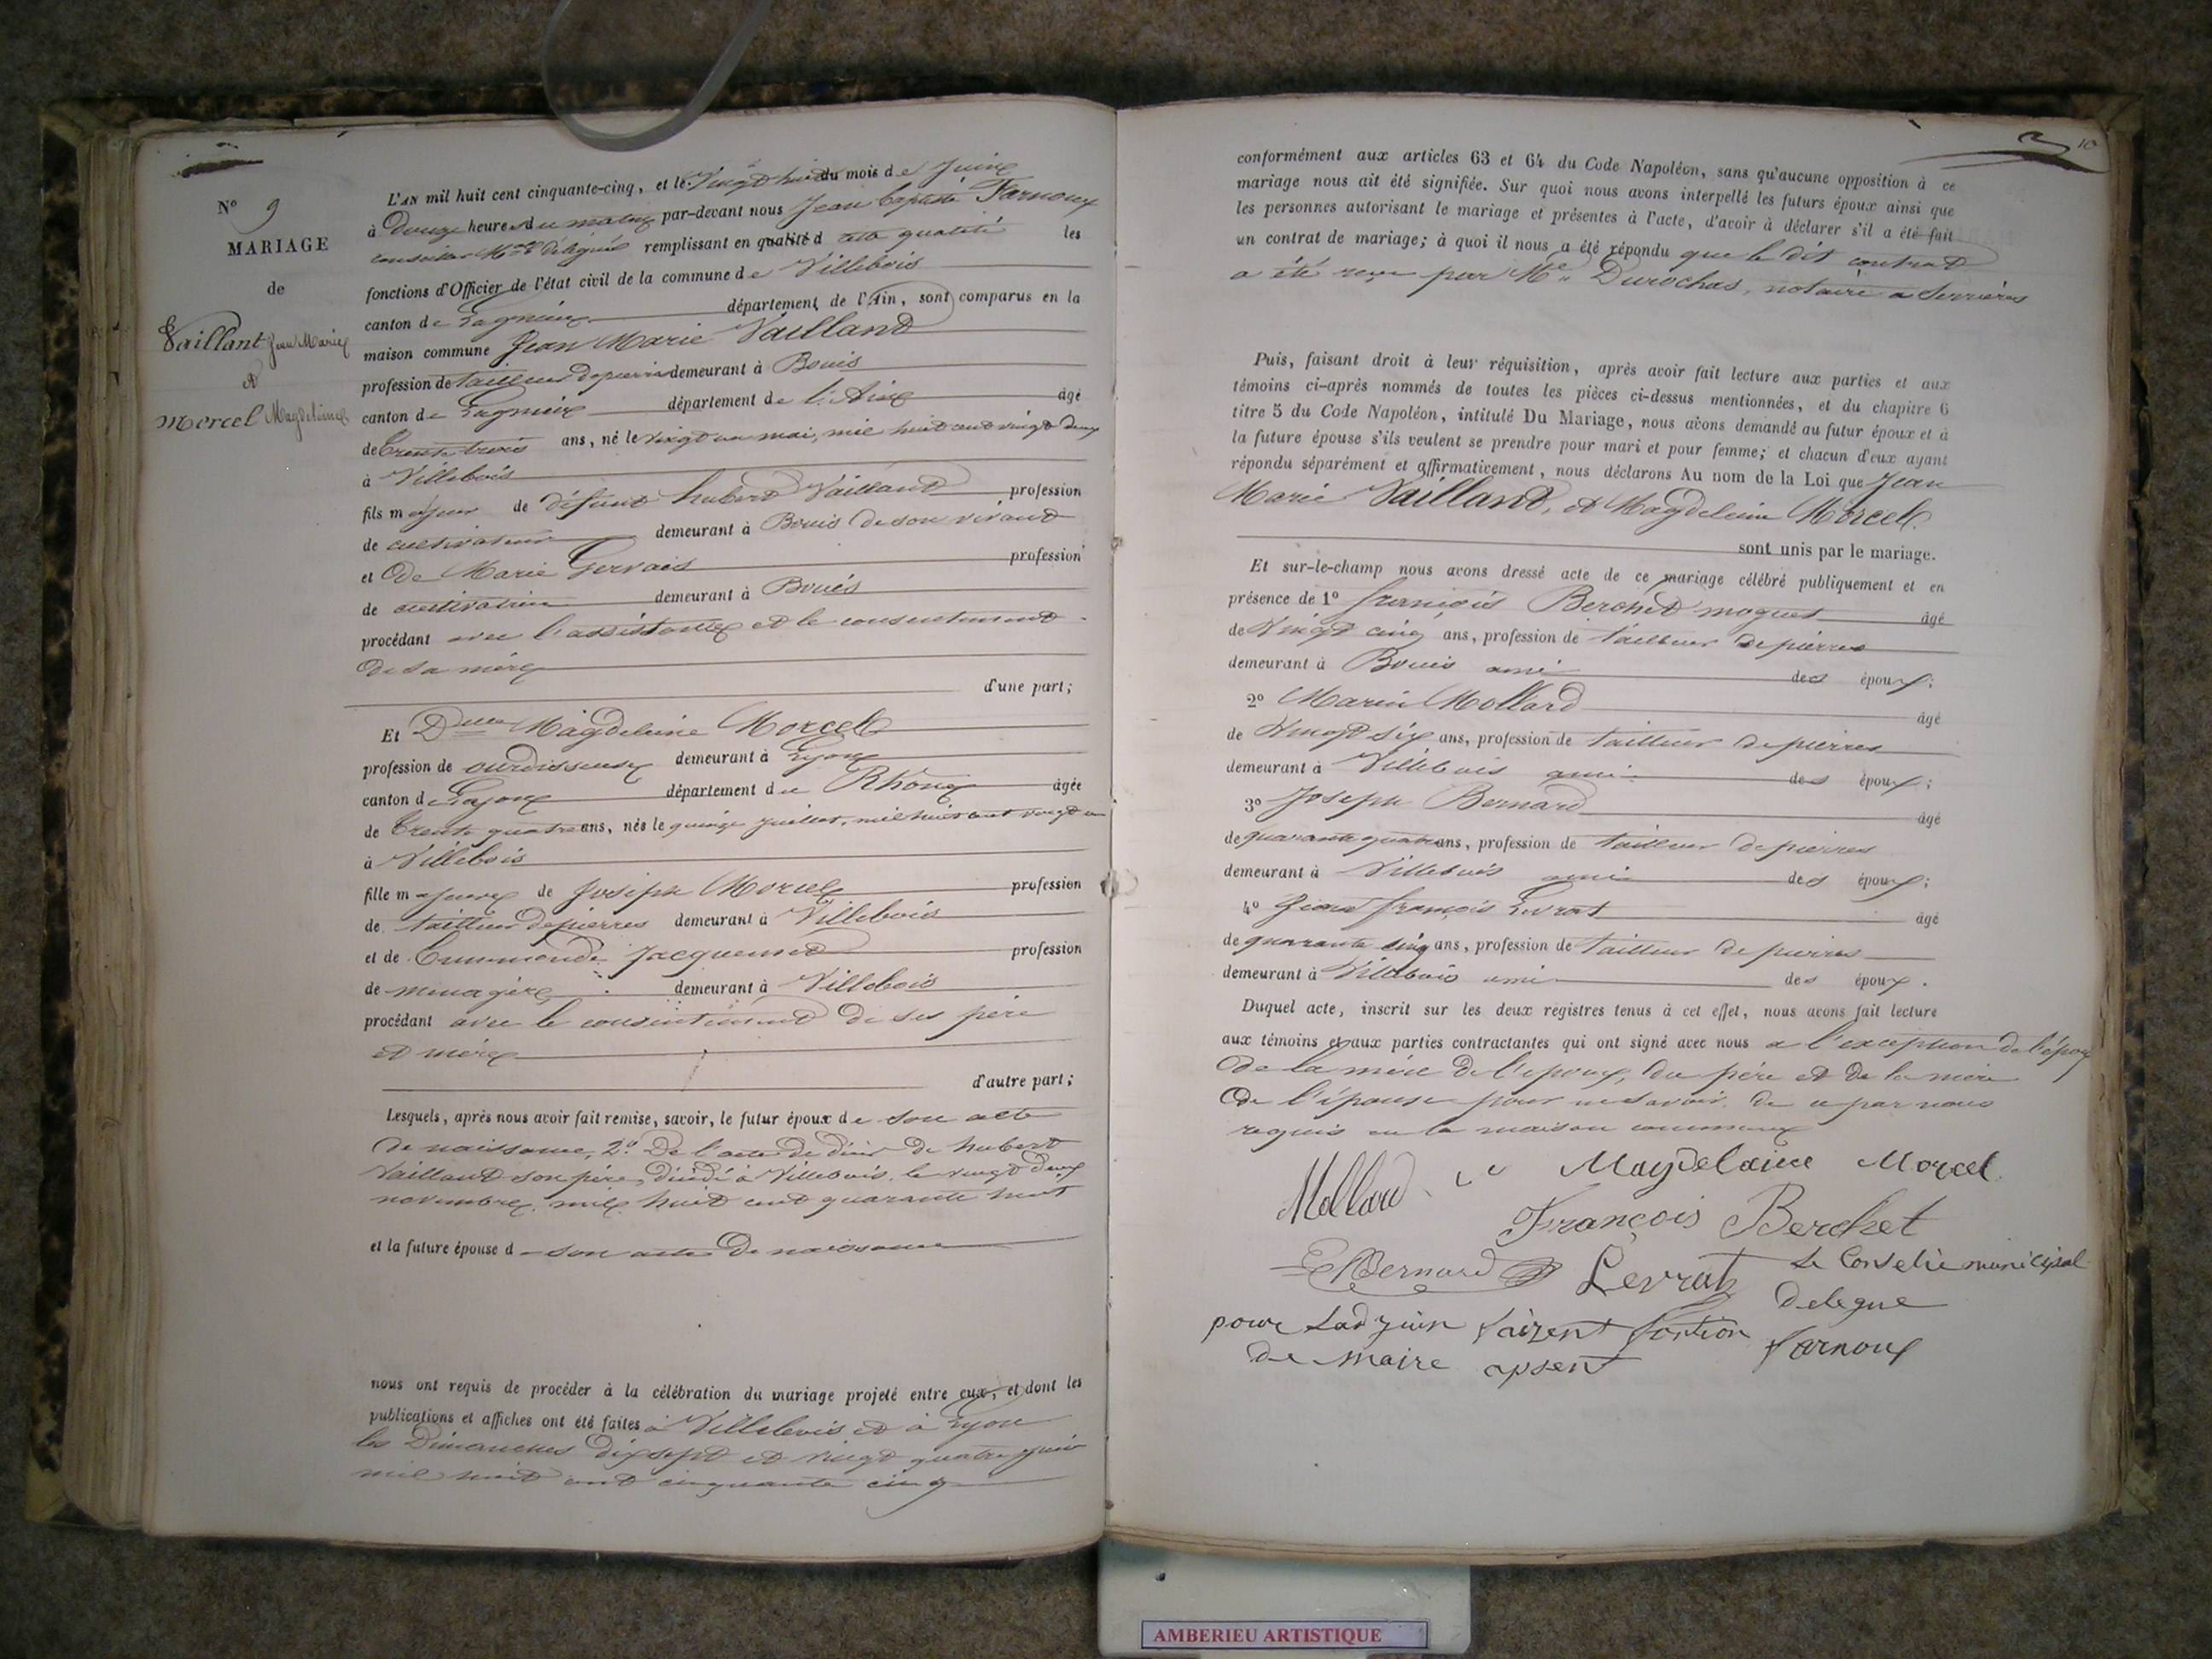 N° 9
MARIAGE
de
Vaillant Jean Marie
et
Morcel Magdeleine
L'AN mil huit cent cinquante-cinq, et le vingt huit du mois de Juin
à douze heures du matin par-devant nous Jean Baptiste Farnoux
conseiller M.al délégué remplissant en qualité d cette qualité les
fonctions d'Officier de l'état civil de la commune de Villebois
canton de Lagnieu département de l'Ain, sont comparus en la
maison commune Jean Marie Vailland
profession de tailleur de pierres demeurant à Bouis
canton de Lagnieu département de l'Ain âgé
de trente trois ans, né le vingt un mai, mil huit cent vingt deux
à Villebois
fils majeur de défunt hubert Vailland profession
de cultivateur demeurant à Bouis de son vivant
et de Marie Gervais profession
de cultivatrice demeurant à Bouis
procédant avec l'assistance et le consentement
de sa mère
d'une part;
Et Dlle Magdeleine Morcel
profession de ourdisseuse demeurant à Lyon
canton de Lyon département du Rhône âgée
de trente quatre ans, née le quinze juillet, mil huit cent vingt un
à Villebois
fille majeure de Joseph Morcel profession
de tailleur de pierres demeurant à Villebois
et de Jacquemet profession
de ménagère demeurant à Villebois
procédant avec le consentement de ses père
et mère
d'autre part;
Lesquels, après nous avoir fait remise, savoir, le futur époux de son acte
de naissance, 2° De l'acte de décès de hubert
Vailland son père, décédé à Villebois, le vingt deux
novembre, mil huit cent quarante huit
et la future épouse d son acte de naissance
nous ont requis de procéder à la célébration du mariage projeté entre eux, et dont les
publications et affiches ont été faites à Villebois et à Lyon
les Dimanches dix sept et vingt quatre juin
mil huit cent cinquante cinq
10
conformément aux articles 63 et 64 du Code Napoléon, sans qu'aucune opposition à ce
mariage nous ait été signifiée. Sur quoi nous avons interpellé les futurs époux ainsi que
les personnes autorisant le mariage et présentes à l'acte, d'avoir à déclarer s'il a été fait
un contrat de mariage; à quoi il nous a été répondu que le dit contrat
a été reçu par Me Durochas, notaire à Serrières
Puis, faisant droit à leur réquisition, après avoir fait lecture aux parties et aux
témoins ci-après nommés de toutes les pièces ci-dessus mentionnées, et du chapitre 6
titre 5 du Code Napoléon, intitulé Du Mariage, nous avons demandé au futur époux et à
la future épouse s'ils veulent se prendre pour mari et pour femme; et chacun d'eux ayant
répondu séparément et affirmativement, nous déclarons Au nom de la Loi que Jean
Marie Vailland, et Magdeleine Morcel
sont unis par le mariage.
Et sur-le-champ nous avons dressé acte de ce mariage célébré publiquement et en
présence de 1° françois Berchet moguet âgé
de Vingt cinq ans, profession de tailleur de pierres
demeurant à Bouis ami des époux;
2° Marin Mollard âgé
de Vingt six ans, profession de tailleur de pierres
demeurant à Villebois ami des époux;
3° Joseph Bernard âgé
de quarante quatre ans, profession de tailleur de pierres
demeurant à Villebois ami des époux;
4° Jean françois Levrat âgé
de quarante cinq ans, profession de tailleur de pierres
demeurant à Villebois ami des époux.
Duquel acte, inscrit sur les deux registres tenus à cet effet, nous avons fait lecture
aux témoins et aux parties contractantes qui ont signé avec nous a l'exception de l'époux
de la mère de l'époux, du père et de la mère
de l'épouse pour ne savoir, de ce par nous
requis en la maison commune
Mollard Magdelaine Morcel
François Berchet
Bernard Levrat Le Conselié municipal
delegue
pour Ladjuin faizent fontion farnoux
de maire apsent
AMBERIEU ARTISTIQUE